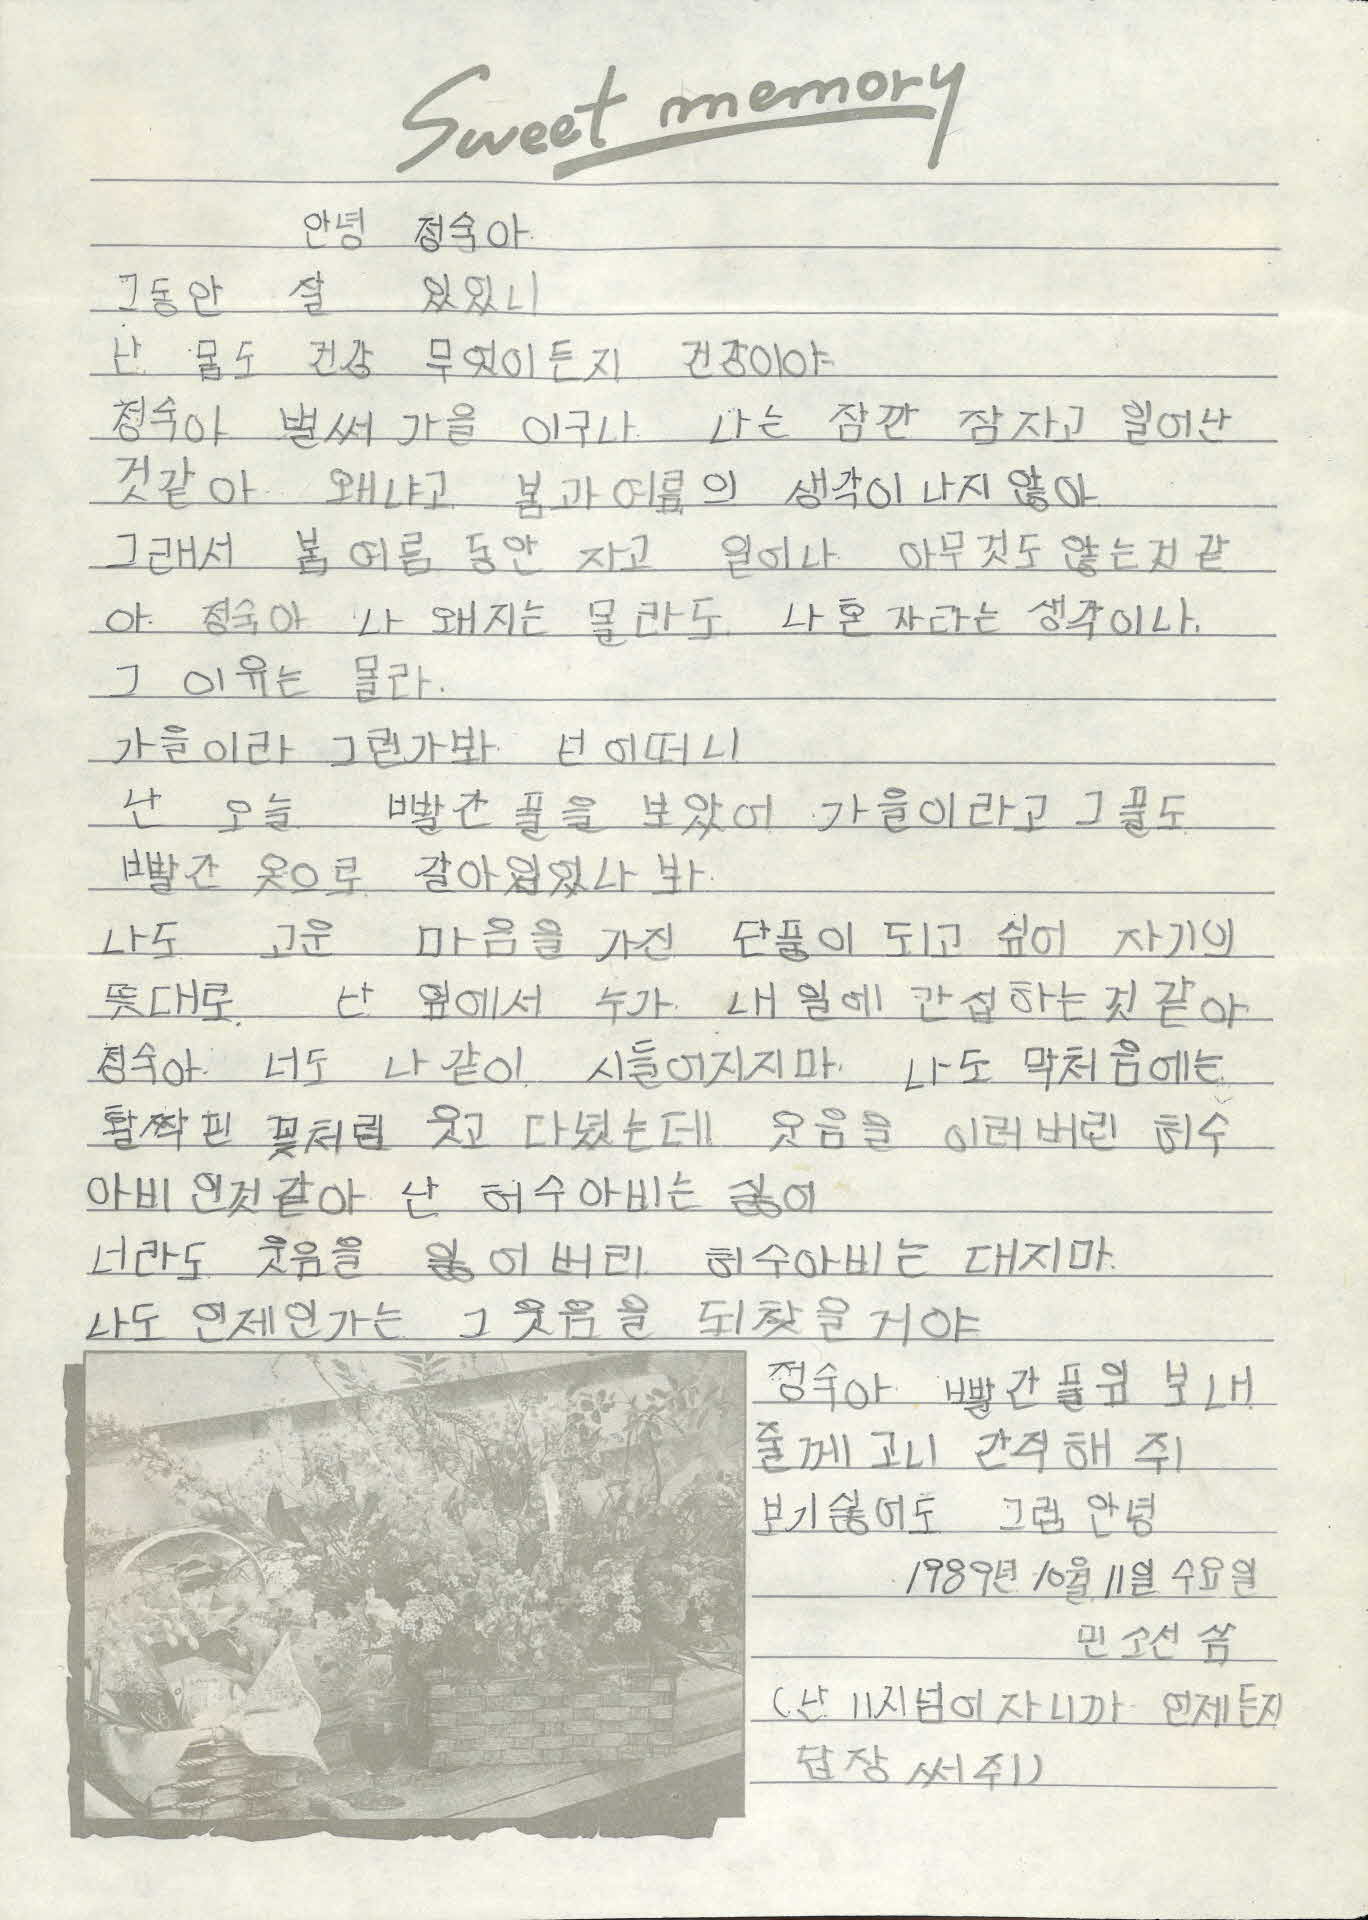 Sweet memory
안녕 정숙아
그동안 잘 있있니
난 몸도 건강 무엇이든지 건강이야
정숙아 벌써 가을 이구나 나는 잠깐 잠자고 일어난
것같아 왜냐고 봄과여름의 생각이 나지 않아
그래서 봄 여름 동안 자고 일어나 아무것도 않는것 같
아 정숙아 나 왜지는 몰라도 나 혼자라는 생각이나.
그 이유는 몰라.
가을이라 그런가봐 넌 어떠니
난 오늘 빨간 풀을 보았어 가을이라고 그 풀도
빨간 옷으로 갈아입었나 봐
나도 고운 마음을 가진 단풍이 되고 싶어 자기의
뜻대로 난 옆에서 누가 내 일에 간섭하는것 같아
정숙아 너도 나 같이 시들어지지마 나도 막처음에는
활짝핀 꽃처럼 웃고 다녔는데 웃음을 이러버린 허수
아비 인것같아 난 허수아비는 싫어
너라도 웃음을 잃어버리 허수아비는 대지마
나도 언제인가는 그 웃음을 되찾을거야
정숙아 빨간풀잎 보내
줄께 고니 간직해 줘
보기싫어도 그럼 안녕
1989년 10월 11일 수요일
민소선 씀
(난 11시넘어 자니까 언제든지
답장 써 줘)